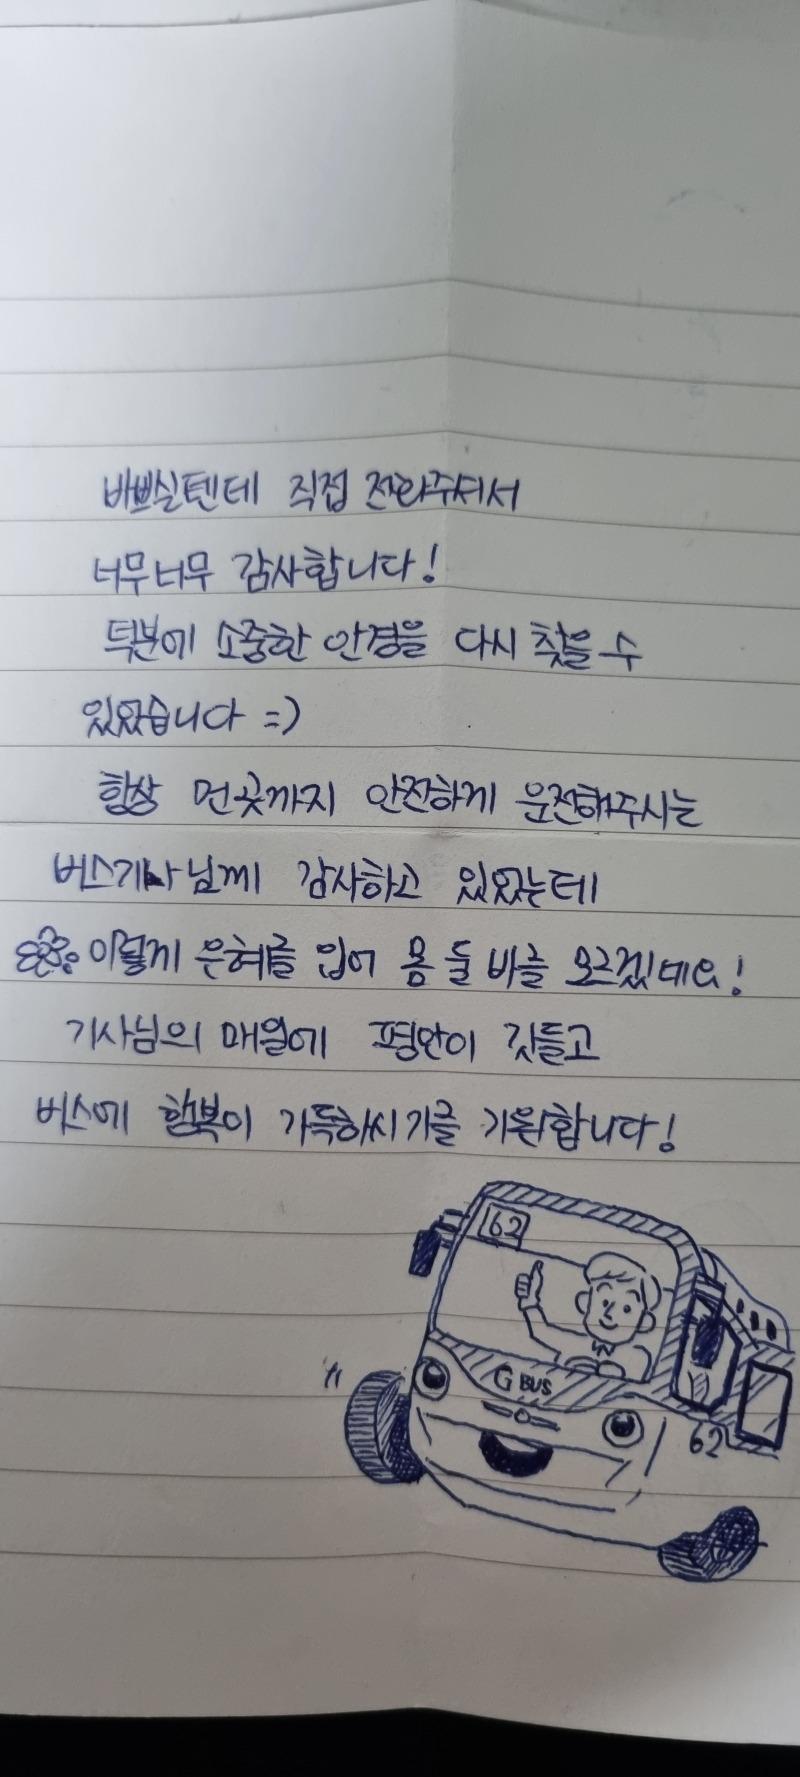 바쁘실텐데 직접 전화주셔서
너무너무 감사합니다!
덕분에 소중한 안경을 다시 찾을 수
있었습니다 =)
항상 먼곳까지 안전하게 운전해주시는
버스기사님께 감사하고 있었는데
이렇게 은혜를 입어 몸 둘 바를 모르겠네요!
기사님의 매일에 평안이 깃들고
버스에 행복이 가득하시기를 기원합니다!
62
G BUS
62